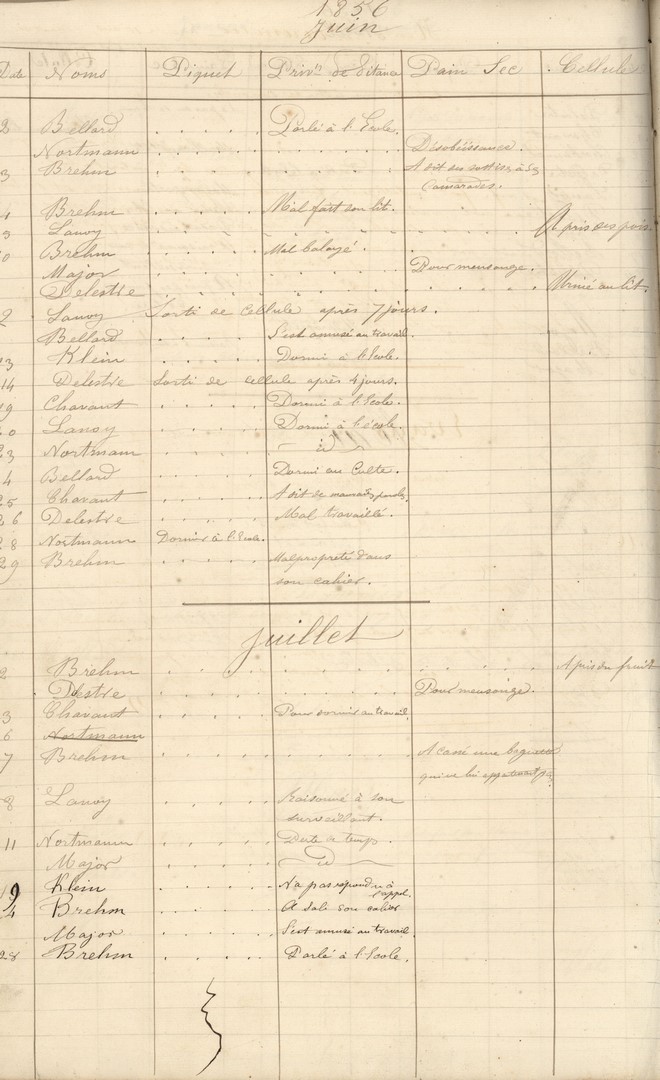 1856
Juin
Date Noms Piquet Priv.on de Pitance Pain Sec Cellule
2 Bellard Parlé à l'Ecole.
Nortmann Désobéissance.
3 Brehm A dit des sottises à ses
camarades.
4 Brehm Mal fait son lit.
9 Lanoy A pris des pois.
10 Brehm Mal balayé.
Major Pour mensonge.
Delestre Uriné au lit.
Lanoy Sorti de cellule après 7 jours.
Bellard S'est amusé au travail.
13 Klein Dormi à l'Ecole.
14 Delestre Sorti de cellule après 4 jours.
19 Chavant Dormi à l'Ecole.
20 Lanoy Dormi à l'école.
23 Nortmann id
24 Bellard Dormi au Culte.
25 Chavant A dit de mauvais paroles
26 Delestre Mal travaillé.
28 Nortmann Dormir à l'Ecole.
29 Brehm Malpropreté dans
son cahier.
Juillet
2 Brehm A pris du fruit
Pour mensonge.
3 Chavant Pour dormir au travail
6 Nortmann
7 Brehm A cassé une
qui ne lui appartenait pas
8 Lanoy Raisonné à son
surveillant.
11 Nortmann Perte de temps.
Major id
19 Klein N'a pas répondu à
l'appel.
Brehm A sali son cahier
Major S'est amusé au travail.
28 Brehm Parlé à l'Ecole.